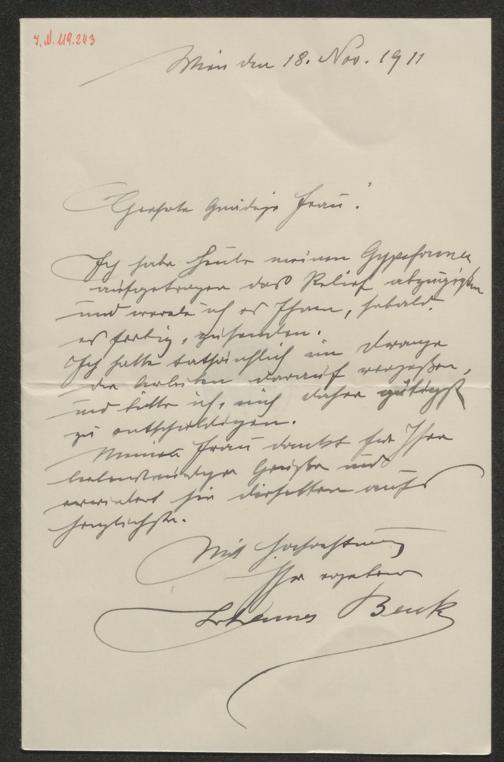 I.N. 119.203
Wien den 18. Nov. 1911
Geehrte gnädige Frau!
Ich habe heute meinen Gypsformer
aufgetragen das Relief abzugießen
und werde ich es Ihnen, sobald
es fertig, zusenden.
Ich hatte thatsächlich im Drange
der Arbeiten darauf vergessen,
und bitte ich, mich daher gütigst
zu entschuldigen.
Meine Frau dankt für Ihre
liebenswürdigen Grüße und
erwiedert sie dieselben aufs
herzlichste.
Mit Hochachtung
Ihr ergebener
Johannes Benk